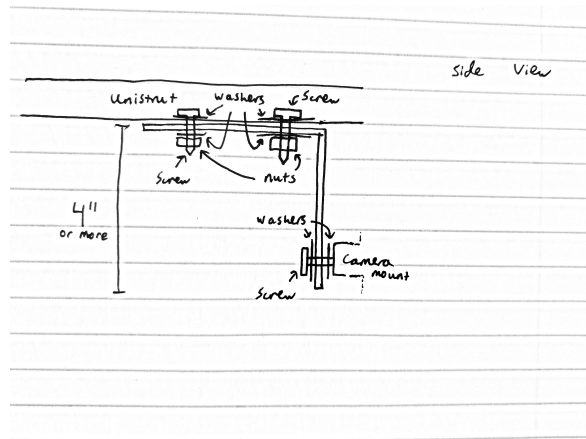 Side View
Unistrut
washers
Screw
Screw
nuts
4"
or more
washers
Camera
mount
Screw